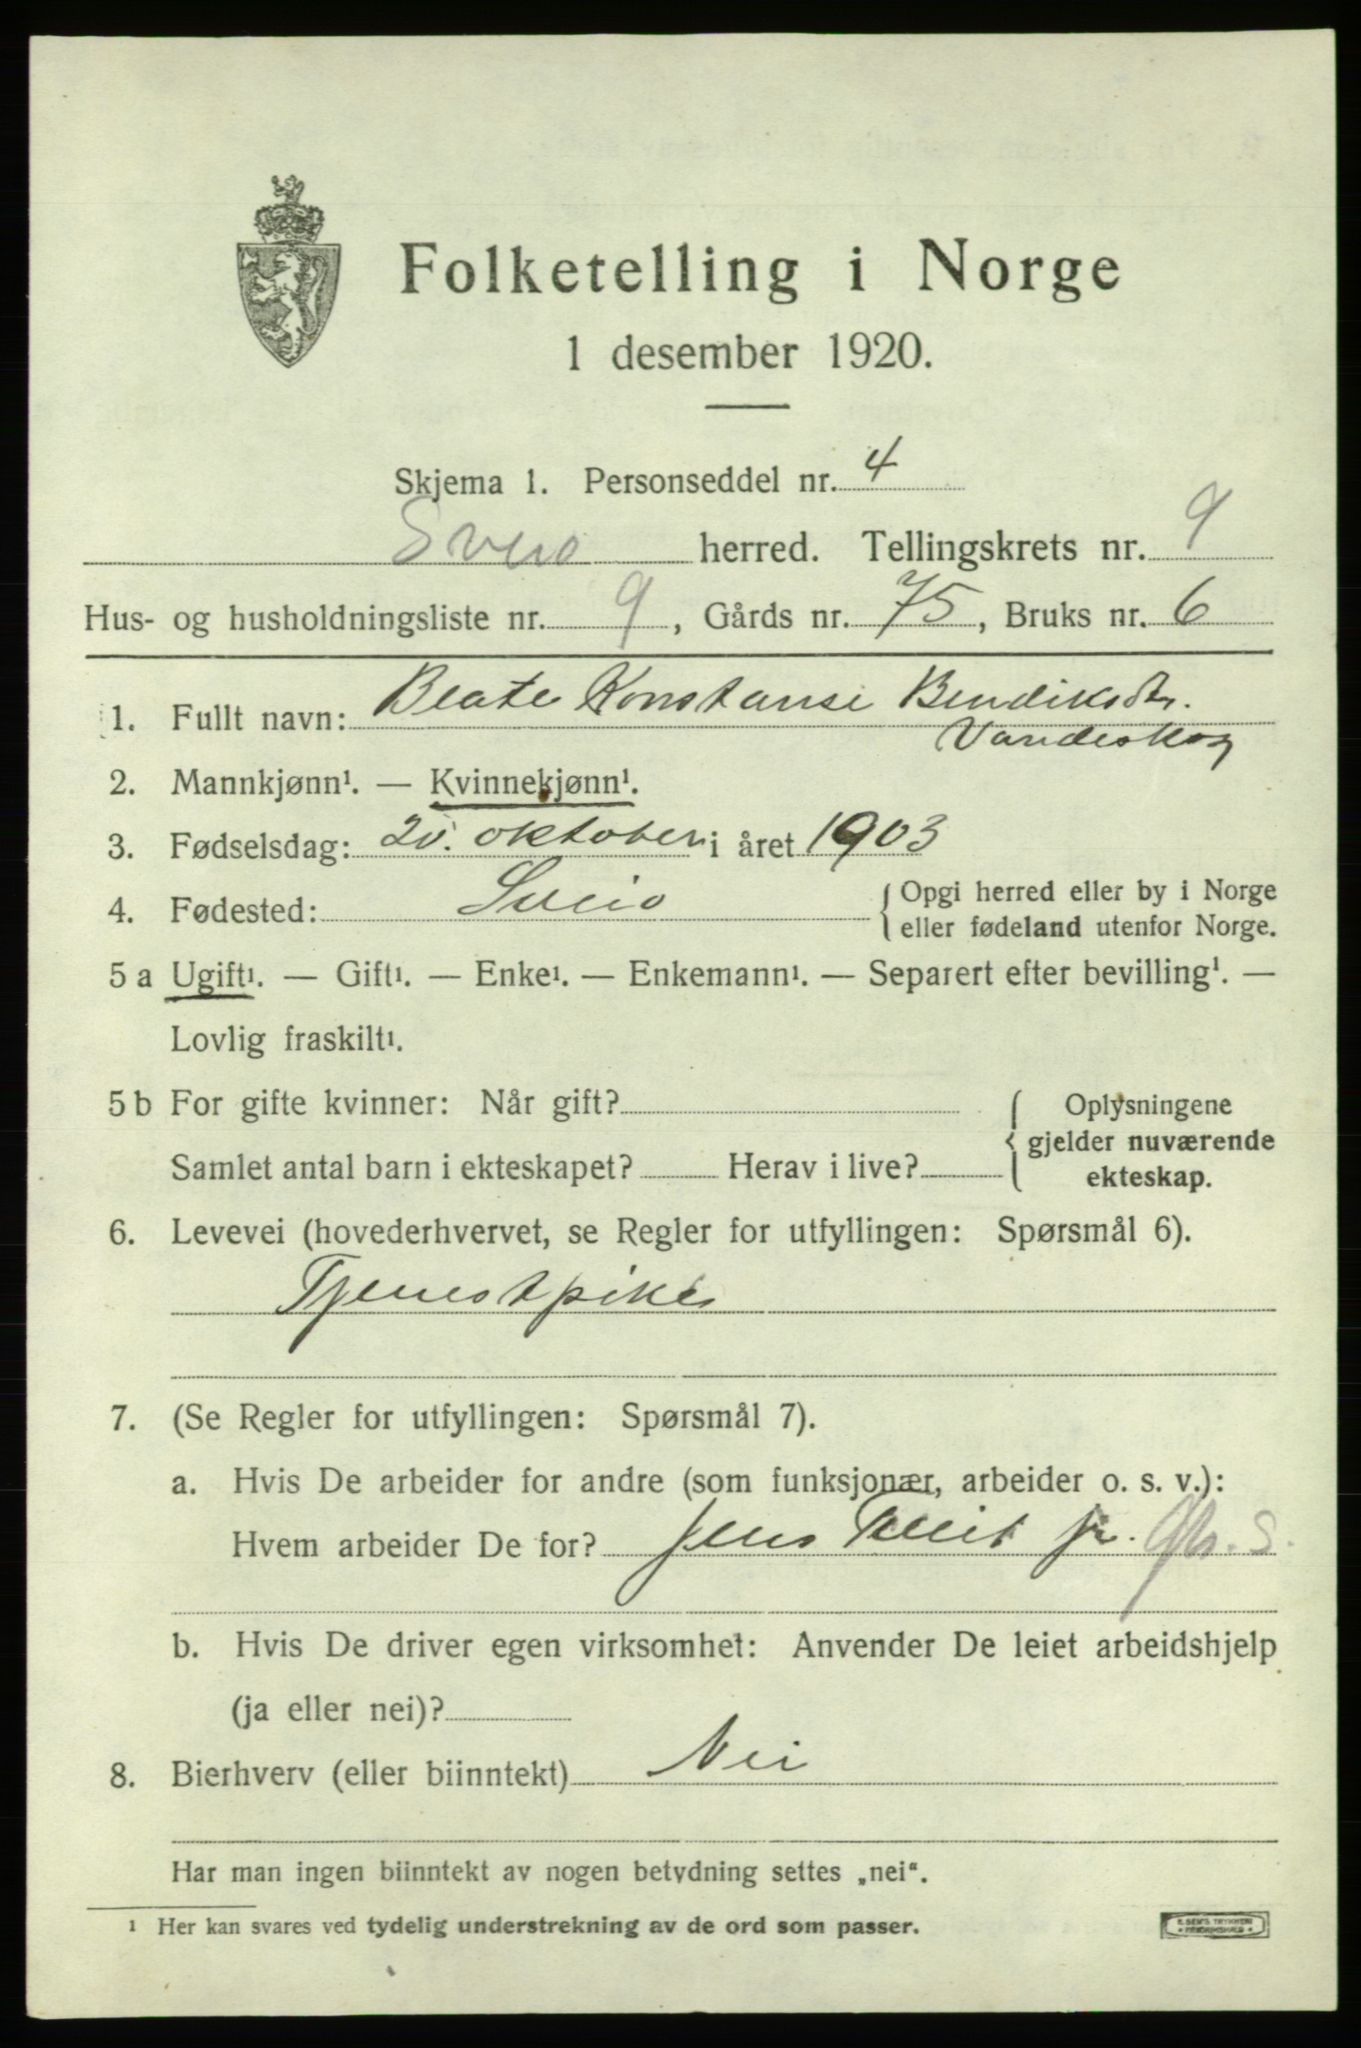 Folketelling i Norge
1 desember 1920.
Skjema 1. Personseddel nr. 4
Sveio herred. Tellingskrets nr. 9
Hus- og husholdningsliste nr. 9, Gårds nr. 75, Bruks nr. 6
1. Fullt navn: Beate Konstanse Bendiksdtr.
Vandeskog
2. Mannkjønn¹. — Kvinnekjønn¹.
3. Fødselsdag: 20. oktober i året 1903
4. Fødested: Sveio { Opgi herred eller by i Norge
eller fødeland utenfor Norge.
5 a Ugift¹. — Gift¹. — Enke¹. — Enkemann¹. — Separert efter bevilling¹. —
Lovlig fraskilt¹.
5 b For gifte kvinner: Når gift? { Oplysningene
gjelder nuværende
Samlet antal barn i ekteskapet? Herav i live?
ekteskap.
6. Levevei (hovederhvervet, se Regler for utfyllingen: Spørsmål 6).
Tjenestpike
7. (Se Regler for utfyllingen: Spørsmål 7).
a. Hvis De arbeider for andre (som funksjonær, arbeider o. s. v.):
Hvem arbeider De for? Jens Tveit jr.
b. Hvis De driver egen virksomhet: Anvender De leiet arbeidshjelp
(ja eller nei)?
8. Bierhverv (eller biinntekt) Nei
Har man ingen biinntekt av nogen betydning settes „nei“.
¹ Her kan svares ved tydelig understrekning av de ord som passer.